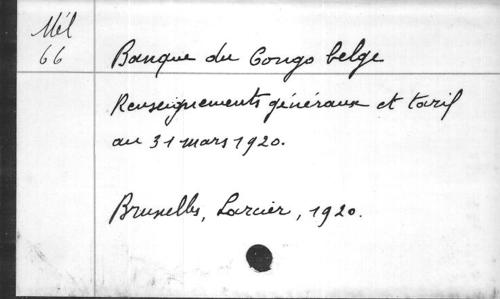 Mél
66
Banque du Congo belge
Renseignements généraux et tarif
au 31 mars 1920.
Bruxelles, Larcier, 1920.